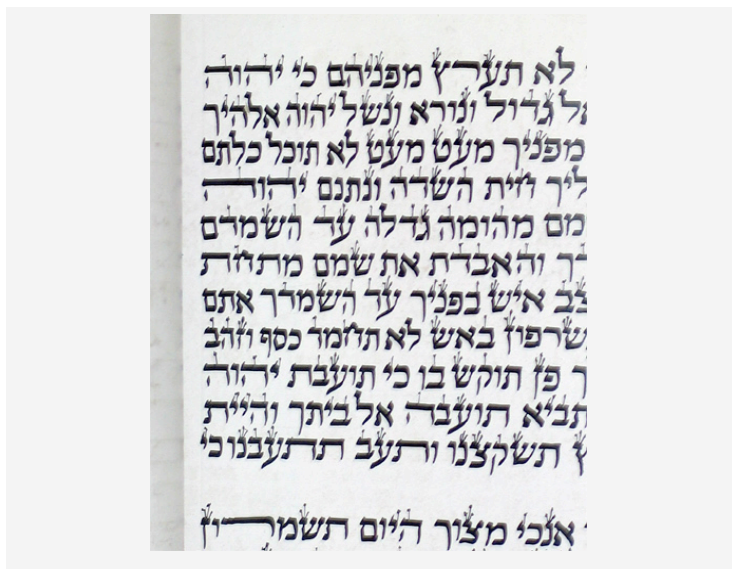 לא תערץ מפניהם כי יהוה
אל גדול ונורא ונשל יהוה אלהיך
מפניך מעט מעט לא תוכל כלתם
ליך חית השדה ונתנם יהוה
מם מהומה גדלה עד השמדם
דך והאבדת את שמם מתחת
צב איש בפניך עד השמדך אתם
שרפון באש לא תחמד כסף וזהב
ך פן תוקש בו כי תועבת יהוה
תביא תועבה אל ביתך והיית
ץ תשקצנו ותעב תתעבנו כי
אנכי מצוך היום תשמרון